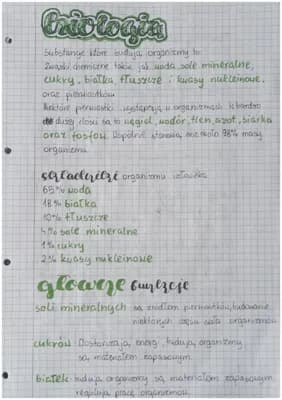 biologia
Substancje które budują organizmy to:
Związki chemiczne takie jak woda, sole mineralne,
cukry, białka, tłuszcze i kwasy nukleinowe.
oraz pierwiastków
Niektóre pierwiastki występują w organizmach w bardzo
dużej ilości są to węgiel, wodór, tlen, azot, siarka
oraz fosfor. Wspólnie stanowią one około 98% masy
organizmu.
składniki organizmu człowieka
65% woda
18% białka
10% tłuszcze
4% sole mineralne
1% cukry
2% kwasy nukleinowe
główne funkcje
soli mineralnych są źródłem pierwiastków, budowanie
niektórych części ciała organizmów
cukrów - Dostarczają energi, budują organizmy
są materiałem zapasowym.
białek - budują organizmy są materiałem zapasowym
regulują pracę organizmów.